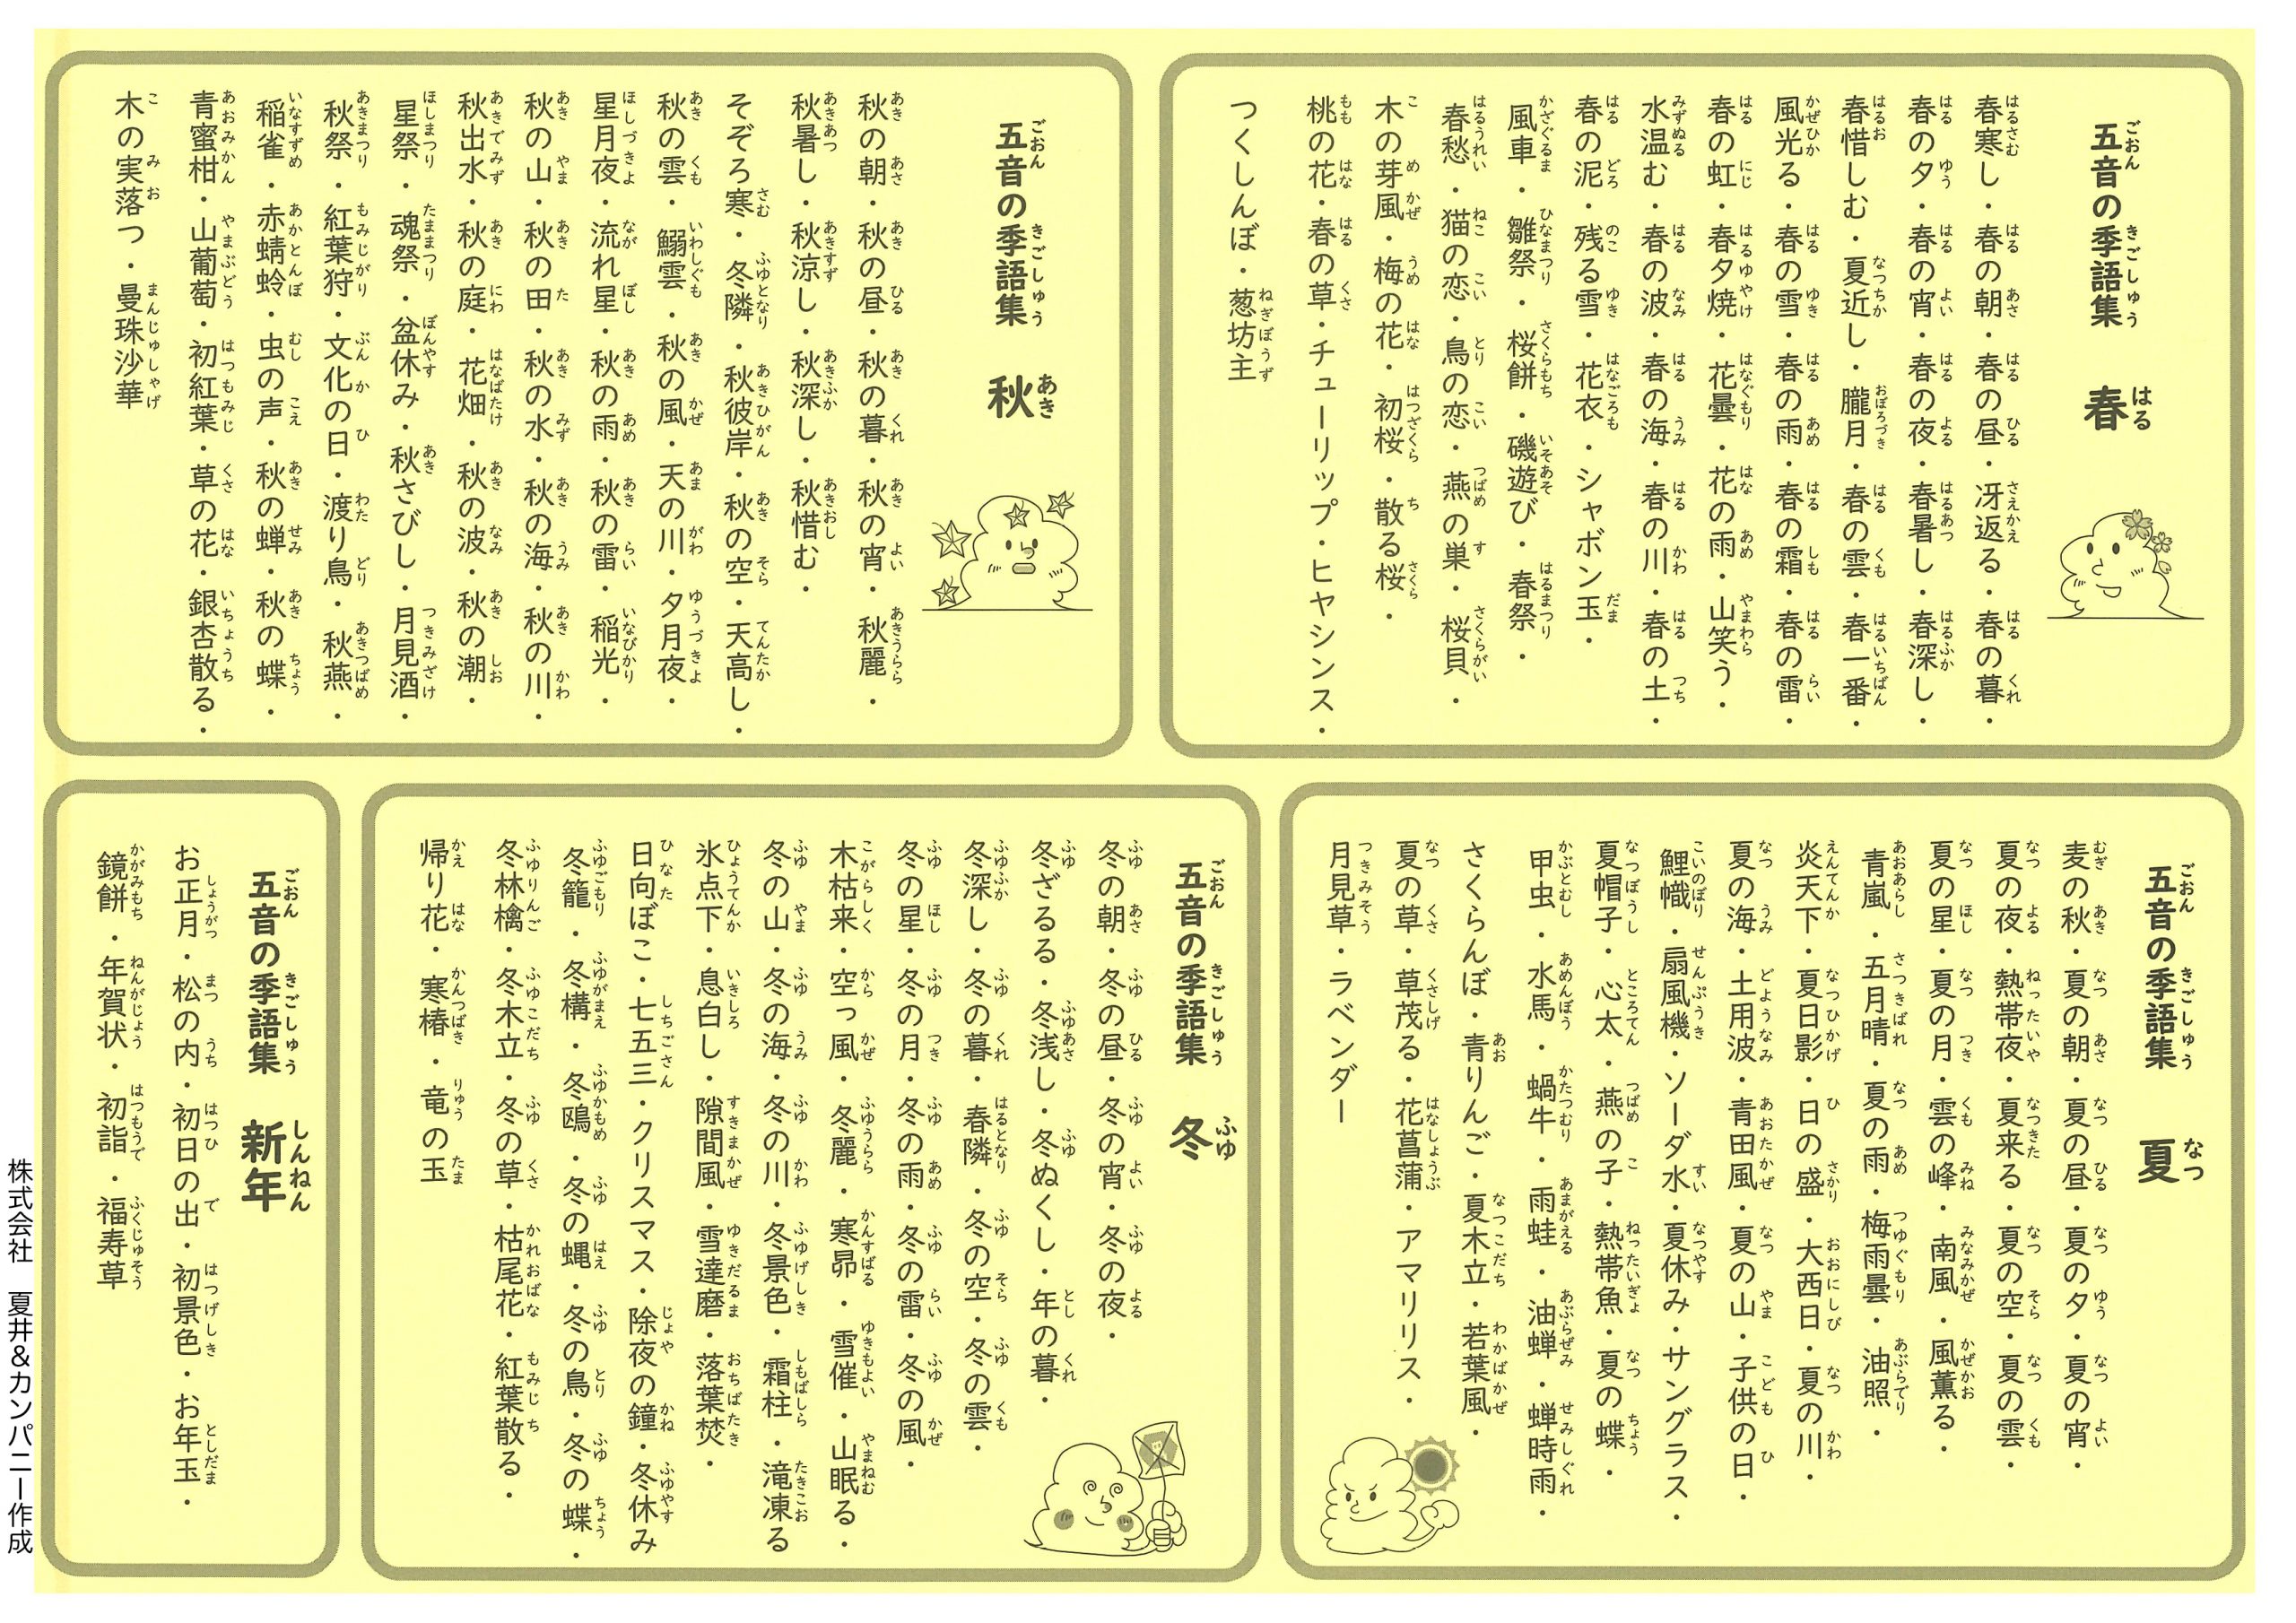 五音の季語集 春
春寒し・春の朝・春の昼・冴返る・春の暮・
春の夕・春の宵・春の夜・春暑し・春深し・
春惜しむ・夏近し・朧月・春の雲・春一番・
風光る・春の雪・春の雨・春の霜・春の雷・
春の虹・春夕焼・花曇・花の雨・山笑う・
水温む・春の波・春の海・春の川・春の土・
春の泥・残る雪・花衣・シャボン玉・
風車・雛祭・桜餅・磯遊び・春祭・
春愁・猫の恋・鳥の恋・燕の巣・桜貝・
木の芽風・梅の花・初桜・散る桜・
桃の花・春の草・チューリップ・ヒヤシンス・
つくしんぼ・葱坊主
五音の季語集 秋
秋の朝・秋の昼・秋の暮・秋の宵・秋麗・
秋暑し・秋涼し・秋深し・秋惜む・
そぞろ寒・冬隣・秋彼岸・秋の空・天高し・
秋の雲・鰯雲・秋の風・天の川・夕月夜・
星月夜・流れ星・秋の雨・秋の雷・稲光・
秋の山・秋の田・秋の水・秋の海・秋の川・
秋出水・秋の庭・花畑・秋の波・秋の潮・
星祭・魂祭・盆休み・秋さびし・月見酒・
秋祭・紅葉狩・文化の日・渡り鳥・秋燕・
稲雀・赤蜻蛉・虫の声・秋の蝉・秋の蝶・
青蜜柑・山葡萄・初紅葉・草の花・銀杏散る・
木の実落つ・曼珠沙華
五音の季語集 夏
麦の秋・夏の朝・夏の昼・夏の夕・夏の宵・
夏の夜・熱帯夜・夏来る・夏の空・夏の雲・
夏の星・夏の月・雲の峰・南風・風薫る・
青嵐・五月晴・夏の雨・梅雨曇・油照・
炎天下・夏日影・日の盛・大西日・夏の川・
夏の海・土用波・青田風・夏の山・子供の日・
鯉幟・扇風機・ソーダ水・夏休み・サングラス・
夏帽子・心太・燕の子・熱帯魚・夏の蝶・
甲虫・水馬・蝸牛・雨蛙・油蝉・蝉時雨・
さくらんぼ・青りんご・夏木立・若葉風・
夏の草・草茂る・花菖蒲・アマリリス・
月見草・ラベンダー
五音の季語集 冬
冬の朝・冬の昼・冬の宵・冬の夜・
冬ざるる・冬浅し・冬ぬくし・年の暮・
冬深し・冬の暮・春隣・冬の空・冬の雲・
冬の星・冬の月・冬の雨・冬の雷・冬の風・
木枯来・空っ風・冬麗・寒昴・雪催・山眠る・
冬の山・冬の海・冬の川・冬景色・霜柱・滝凍る
氷点下・息白し・隙間風・雪達磨・落葉焚・
日向ぼこ・七五三・クリスマス・除夜の鐘・冬休み
冬籠・冬構・冬鴎・冬の蝿・冬の鳥・冬の蝶・
冬林檎・冬木立・冬の草・枯尾花・紅葉散る・
帰り花・寒椿・竜の玉
五音の季語集 新年
お正月・松の内・初日の出・初景色・お年玉・
鏡餅・年賀状・初詣・福寿草
株式会社 夏井＆カンパニー作成